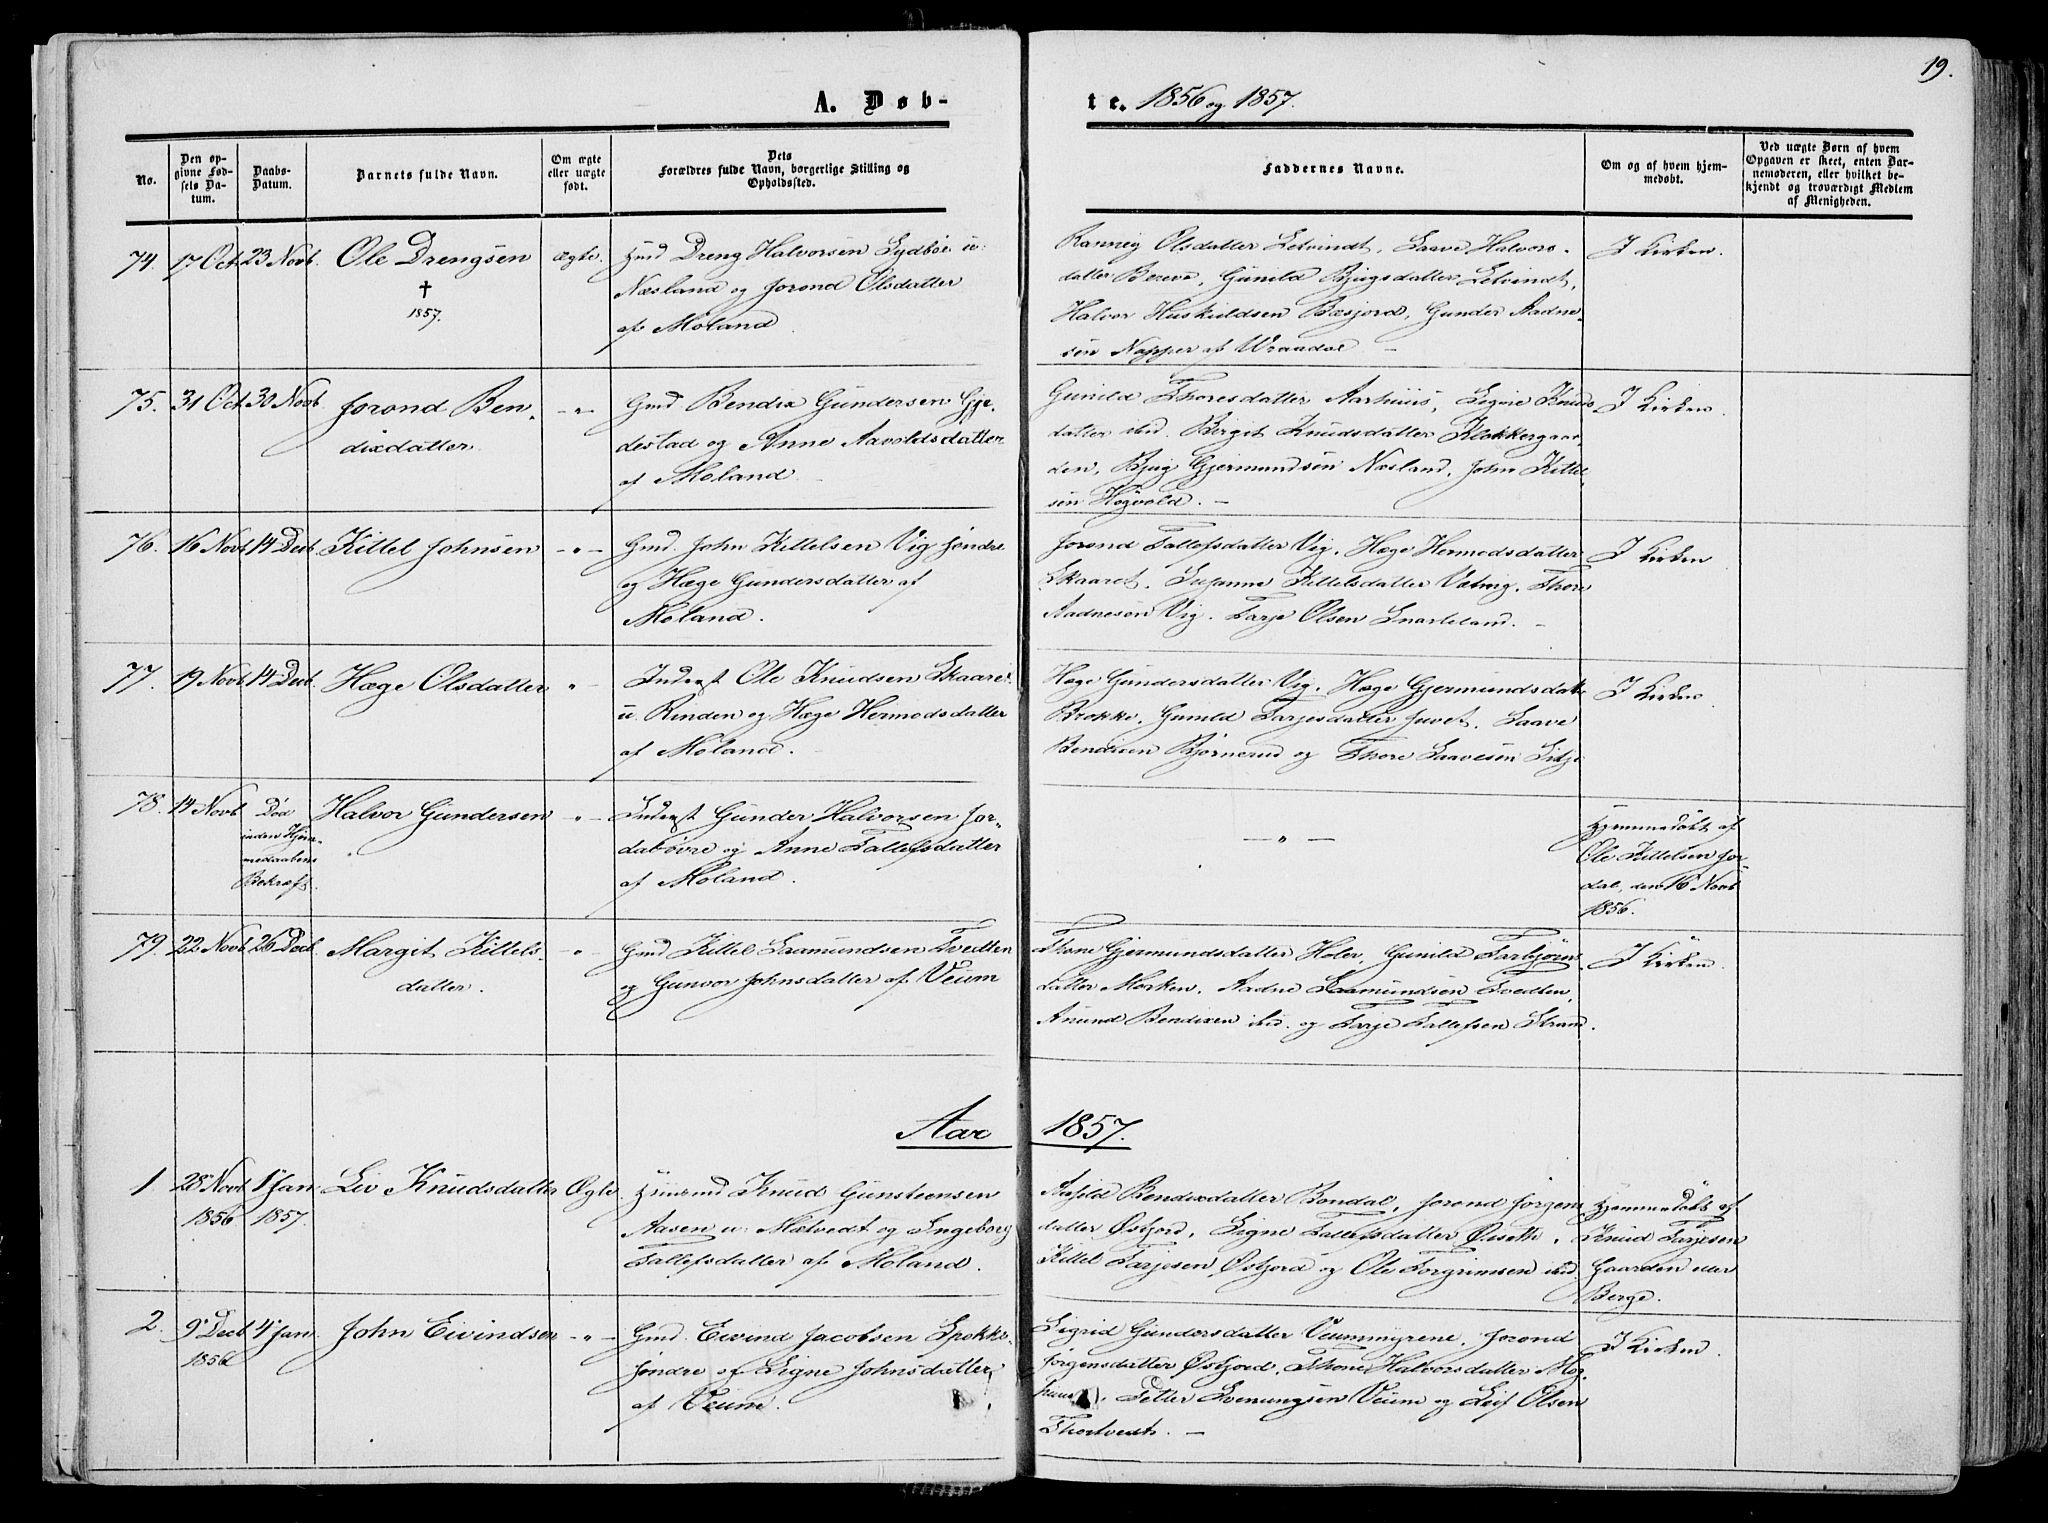 19.
A. Døb-
te. 1856 og 1857.
No.
Den op-
givne Fød-
sels Da-
tum.
Daabs-
Datum.
Barnets fulde Navn.
Om ægte
eller uægte
født.
Dets
Forældres fulde Navn, borgerlige Stilling og
Opholdssted.
Faddernes Navne.
Om og af hvem hjem-
medøbt.
Ved uægte Børn af hvem
Opgaven er skeet, enten Bar-
nemoderen, eller hvilket be-
kjendt og troværdigt Medlem
af Menigheden.
74. 17 Oct. 23 Novb. Ole Drengsen ægte.
† 
1857.
Dreng Halvorsen Lydbøe u:
Næsland og Jorond Olsdatter
af Moland
Ranneig Olsdatter Letvindt, Saave Halvors-
datter Berevæ, Gunild Bjugsdatter Letvindt,
Halvor Huskuldsen Bæsjord, Gunder Aadne-
sen Napper af Wraadal —
I Kirken.
75. 31 Oct. 30 Novb. Jorond Ben-
dixdatter.
— " —
Gmd Bendix Gundersen Gje-
destad og Anne Aavoldsdatter
af Moland.
Gunild Thoresdatter Aarhuus, Signe Knuds
datter ibid. Birgit Knudsdatter Klokkergaar-
den, Bjug Gjermundsen Næsland, John Kittel-
sen Høgvold. —
I Kirken.
76. 16 Novb 14 Decb. Kittel Johnsen — " —
Gmd. John Kittelsen Vig søndre
og Hæge Gundersdatter af
Moland.
Jorond Tallefsdatter Vig, Hæge Hermodsdatter
Skaaret, Susanne Kittelsdatter Vatnig, Thore
Aadnesøn Vig. Tarje Olsen Snarteland. —
I Kirken
77. 19 Novb 14 Decb. Hæge Olsdatter " —
Inderst Ole Knudsen Skaaret
u. Rinden og Hæge Hermodsdatter
af Moland. —
Hæge Gundersdatter Vig, Hæge Gjermundsdatt.
Brokke, Gunild Tarjesdatter Juvet, Saave
Bendixen Bjørnerud og Thore Saavesen
I Kirken
78. 14 Novb Død
inden Hjem-
medaabens
Bekræft.
Halvor Gundersen " —
Inderst Gunder Halvorsen Jor-
daløvre og Anne Tallefsdatter
af Moland.
— " —
Hjemmedøbt af
Ole Kittelsen Jor-
dal, den 16 Novb
1856.
79. 22 Novb 26 Decb. Margit Kittels-
datter.
" —
Gmd Kittel Saamundsen Tvedten
og Gunvor Johnsdatter af Veum
Thone Gjermundsdatter Holer, Gunild Tarbjørns-
datter Morken, Aadne Saamundsen Tvedten,
Anund Bendixen ibid. og Tarje Tallefsen Strand.
I Kirken.
Aar 1857.
1 28 Novb
1856
1 Jan.
1857.
Liv Knudsdatter Ægte.
Huusmd Knud Gunsteensen
Aasen u: Mætvedt og Ingeborg
Tallefsdatter af Moland.
Bendixdatter Bondal, Jorond Jørgens
datter Øifjord, Signe Tallefsdatter Øiseth,
Kittel Tarjesen Øifjord og Ole Torgrimsen ibid.
Hjemmedøbt af
Knud Tarjesen
Gaarden eller
Berge.
2. 9 Decb
1856
4 Jan. John Eivindsen — " —
Gmd. Eivind Jacobsen Spokke-
søndre og Signe Johnsdatter
af Veum.
Sigrid Gundersdatter Veummyrene, Jorond
Jørgensdatter Øifjord, Thone Halvorsdatter
Petter Evenungsen Veum og Leif Olsen
Thortvedt. —
I Kirken.